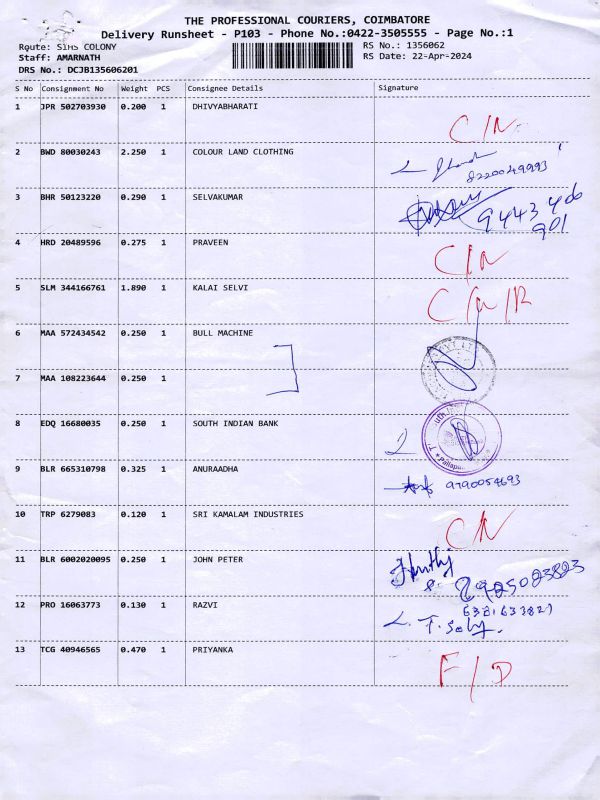 THE PROFESSIONAL COURIERS, COIMBATORE
Delivery Runsheet - P103 - Phone No.:0422-3505555 - Page No.:1
Route: SIHS COLONY
Staff: AMARNATH
DRS No.: DCJB135606201
RS No.: 1356062
RS Date: 22-Apr-2024
S No Consignment No Weight PCS Consignee Details Signature
1 JPR 502703930 0.200 1 DHIVYABHARATI C/N
2 BWD 80030243 2.250 1 COLOUR LAND CLOTHING
8220049993
3 BHR 50123220 0.290 1 SELVAKUMAR 9443 406
901
4 HRD 20489596 0.275 1 PRAVEEN C/N
5 SLM 344166761 1.890 1 KALAI SELVI C/N/R
6 MAA 572434542 0.250 1 BULL MACHINE
7 MAA 108223644 0.250 1
8 EDQ 16680035 0.250 1 SOUTH INDIAN BANK
9 BLR 665310798 0.325 1 ANURAADHA 9790054693
10 TRP 6279083 0.120 1 SRI KAMALAM INDUSTRIES CN
11 BLR 6002020095 0.250 1 JOHN PETER
8925023823
12 PRO 16063773 0.130 1 RAZVI
13 TCG 40946565 0.470 1 PRIYANKA F/D